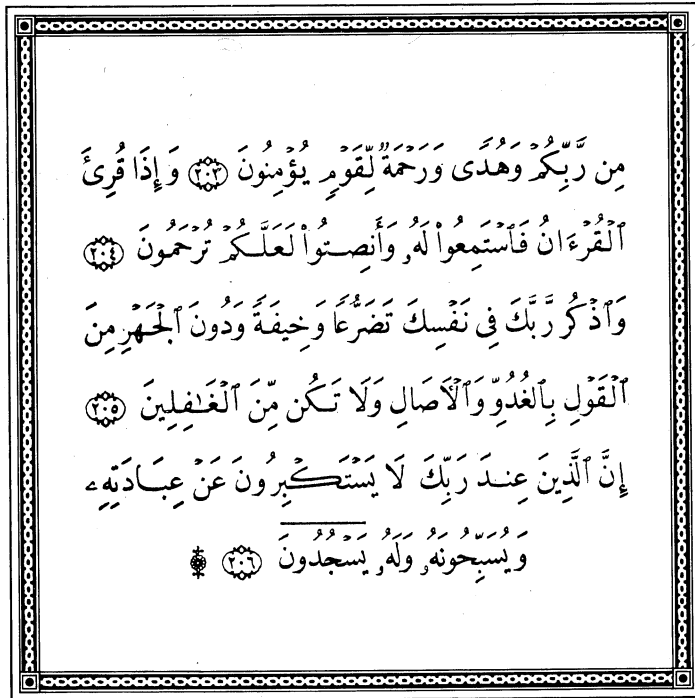 مِن رَّبِّكُمْ وَهُدًى وَرَحْمَةٌ لِّقَوْمٍ يُؤْمِنُونَ ٢٠٣ وَإِذَا قُرِئَ
ٱلْقُرْءَانُ فَٱسْتَمِعُوا۟ لَهُۥ وَأَنصِتُوا۟ لَعَلَّكُمْ تُرْحَمُونَ ٢٠٤
وَٱذْكُر رَّبَّكَ فِى نَفْسِكَ تَضَرُّعًا وَخِيفَةً وَدُونَ ٱلْجَهْرِ مِنَ
ٱلْقَوْلِ بِٱلْغُدُوِّ وَٱلْأَصَالِ وَلَا تَكُن مِّنَ ٱلْغَٰفِلِينَ ٢٠٥
إِنَّ ٱلَّذِينَ عِندَ رَبِّكَ لَا يَسْتَكْبِرُونَ عَنْ عِبَادَتِهِۦ
وَيُسَبِّحُونَهُۥ وَلَهُۥ يَسْجُدُونَ ٢٠٦